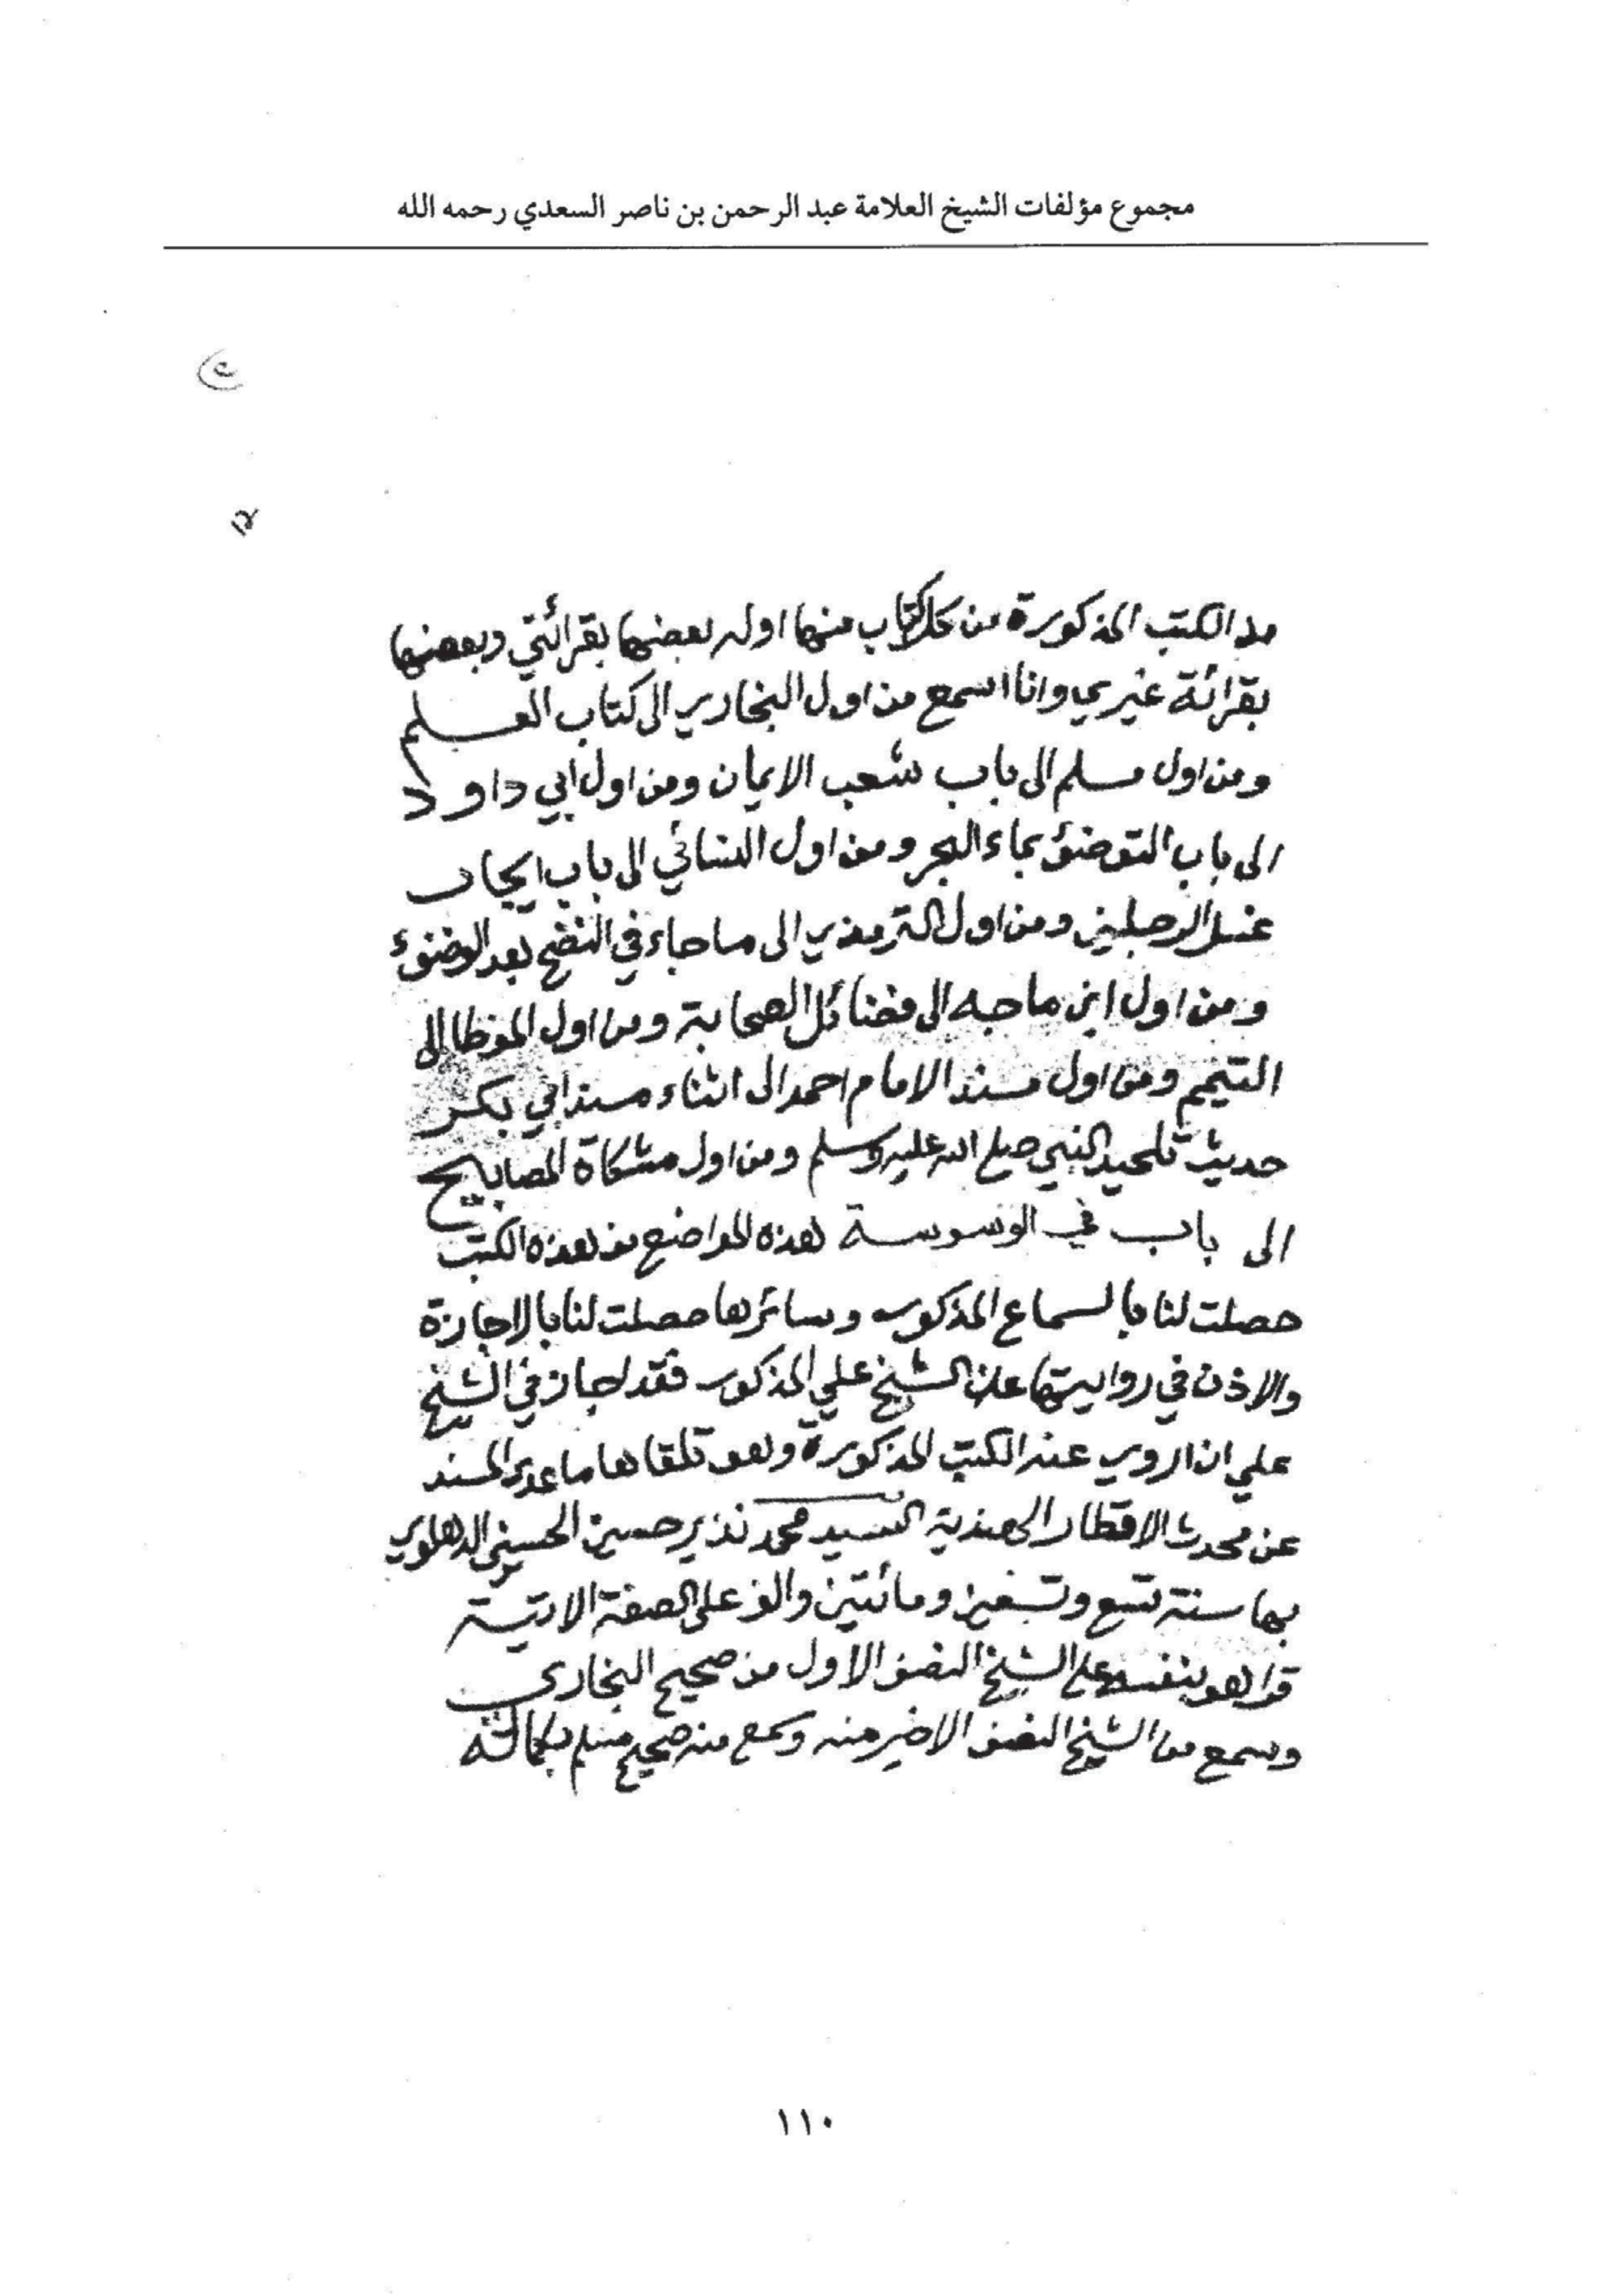 مجموع مؤلفات الشيخ العلامة عبد الرحمن بن ناصر السعدي رحمه الله
الكتب المذكورة من كل كتاب منها اوله بعضها بقرائتي وبعضها
بقرائة غيري وانا اسمع من اول البخاري الى كتاب العلم
ومن اول مسلم الى باب شعب الايمان ومن اول ابي داود
الى باب التوضئ بماء البحر ومن اول النسائي الى باب ايجاب
غسل الرجلين ومن اول الترمذي الى ما جاء في النضح بعد الوضوء
ومن اول ابن ماجه الى فضائل الصحابة ومن اول الموطا الى
التيمم ومن اول مسند الامام احمد الى اثناء مسند ابي بكر
حديث تلحيد النبي صلى الله عليه وسلم ومن اول مشكاة المصابيح
الى باب في الوسوسة هذه المواضع من هذه الكتب
حصلت لنا بالسماع المذكور وسائرها حصلت لنا بالاجازة
والاذن في روايتها عن الشيخ علي المذكور فقد اجازني الشيخ
علي ان اروي عنه الكتب المذكورة وهو تلقاها ما عدى المسند
عن محدث الاقطار الهندية السيد محمد نذير حسين الحسيني الدهلوي
بها سنة تسع وتسعين ومائتين والف على الصفة الاتية
قرا هو بنفسه على الشيخ النصف الاول من صحيح البخاري
وسمع من الشيخ النصف الاخير منه وسمع منه صحيح مسلم بكماله
١١٠